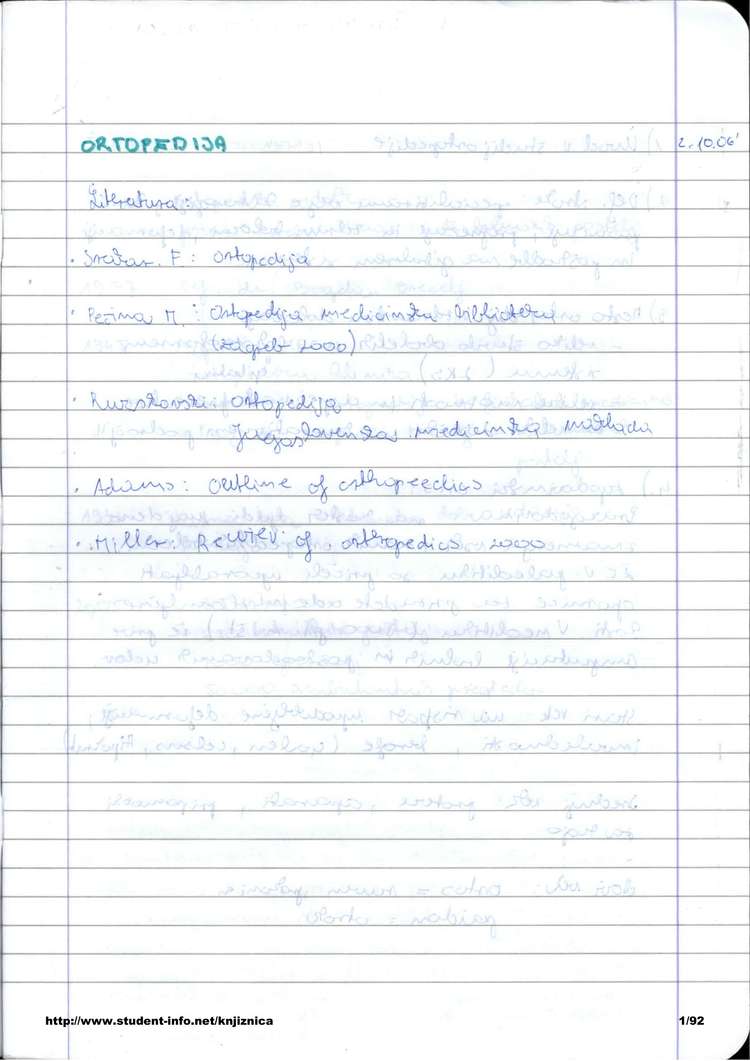 ORTOPEDIJA 2.10.06'
Literatura:
• Srakar. F: Ortopedija
• Pećina M.: Ortopedija medicinska biblioteka
(Zagreb 2000)
• Ruszkowski: ortopedija
Jugoslovenska medicinska naklada
• Adams: Outline of orthopeedics
• Miller: Review of orthopedics 2000
http://www.student-info.net/knjiznica 1/92